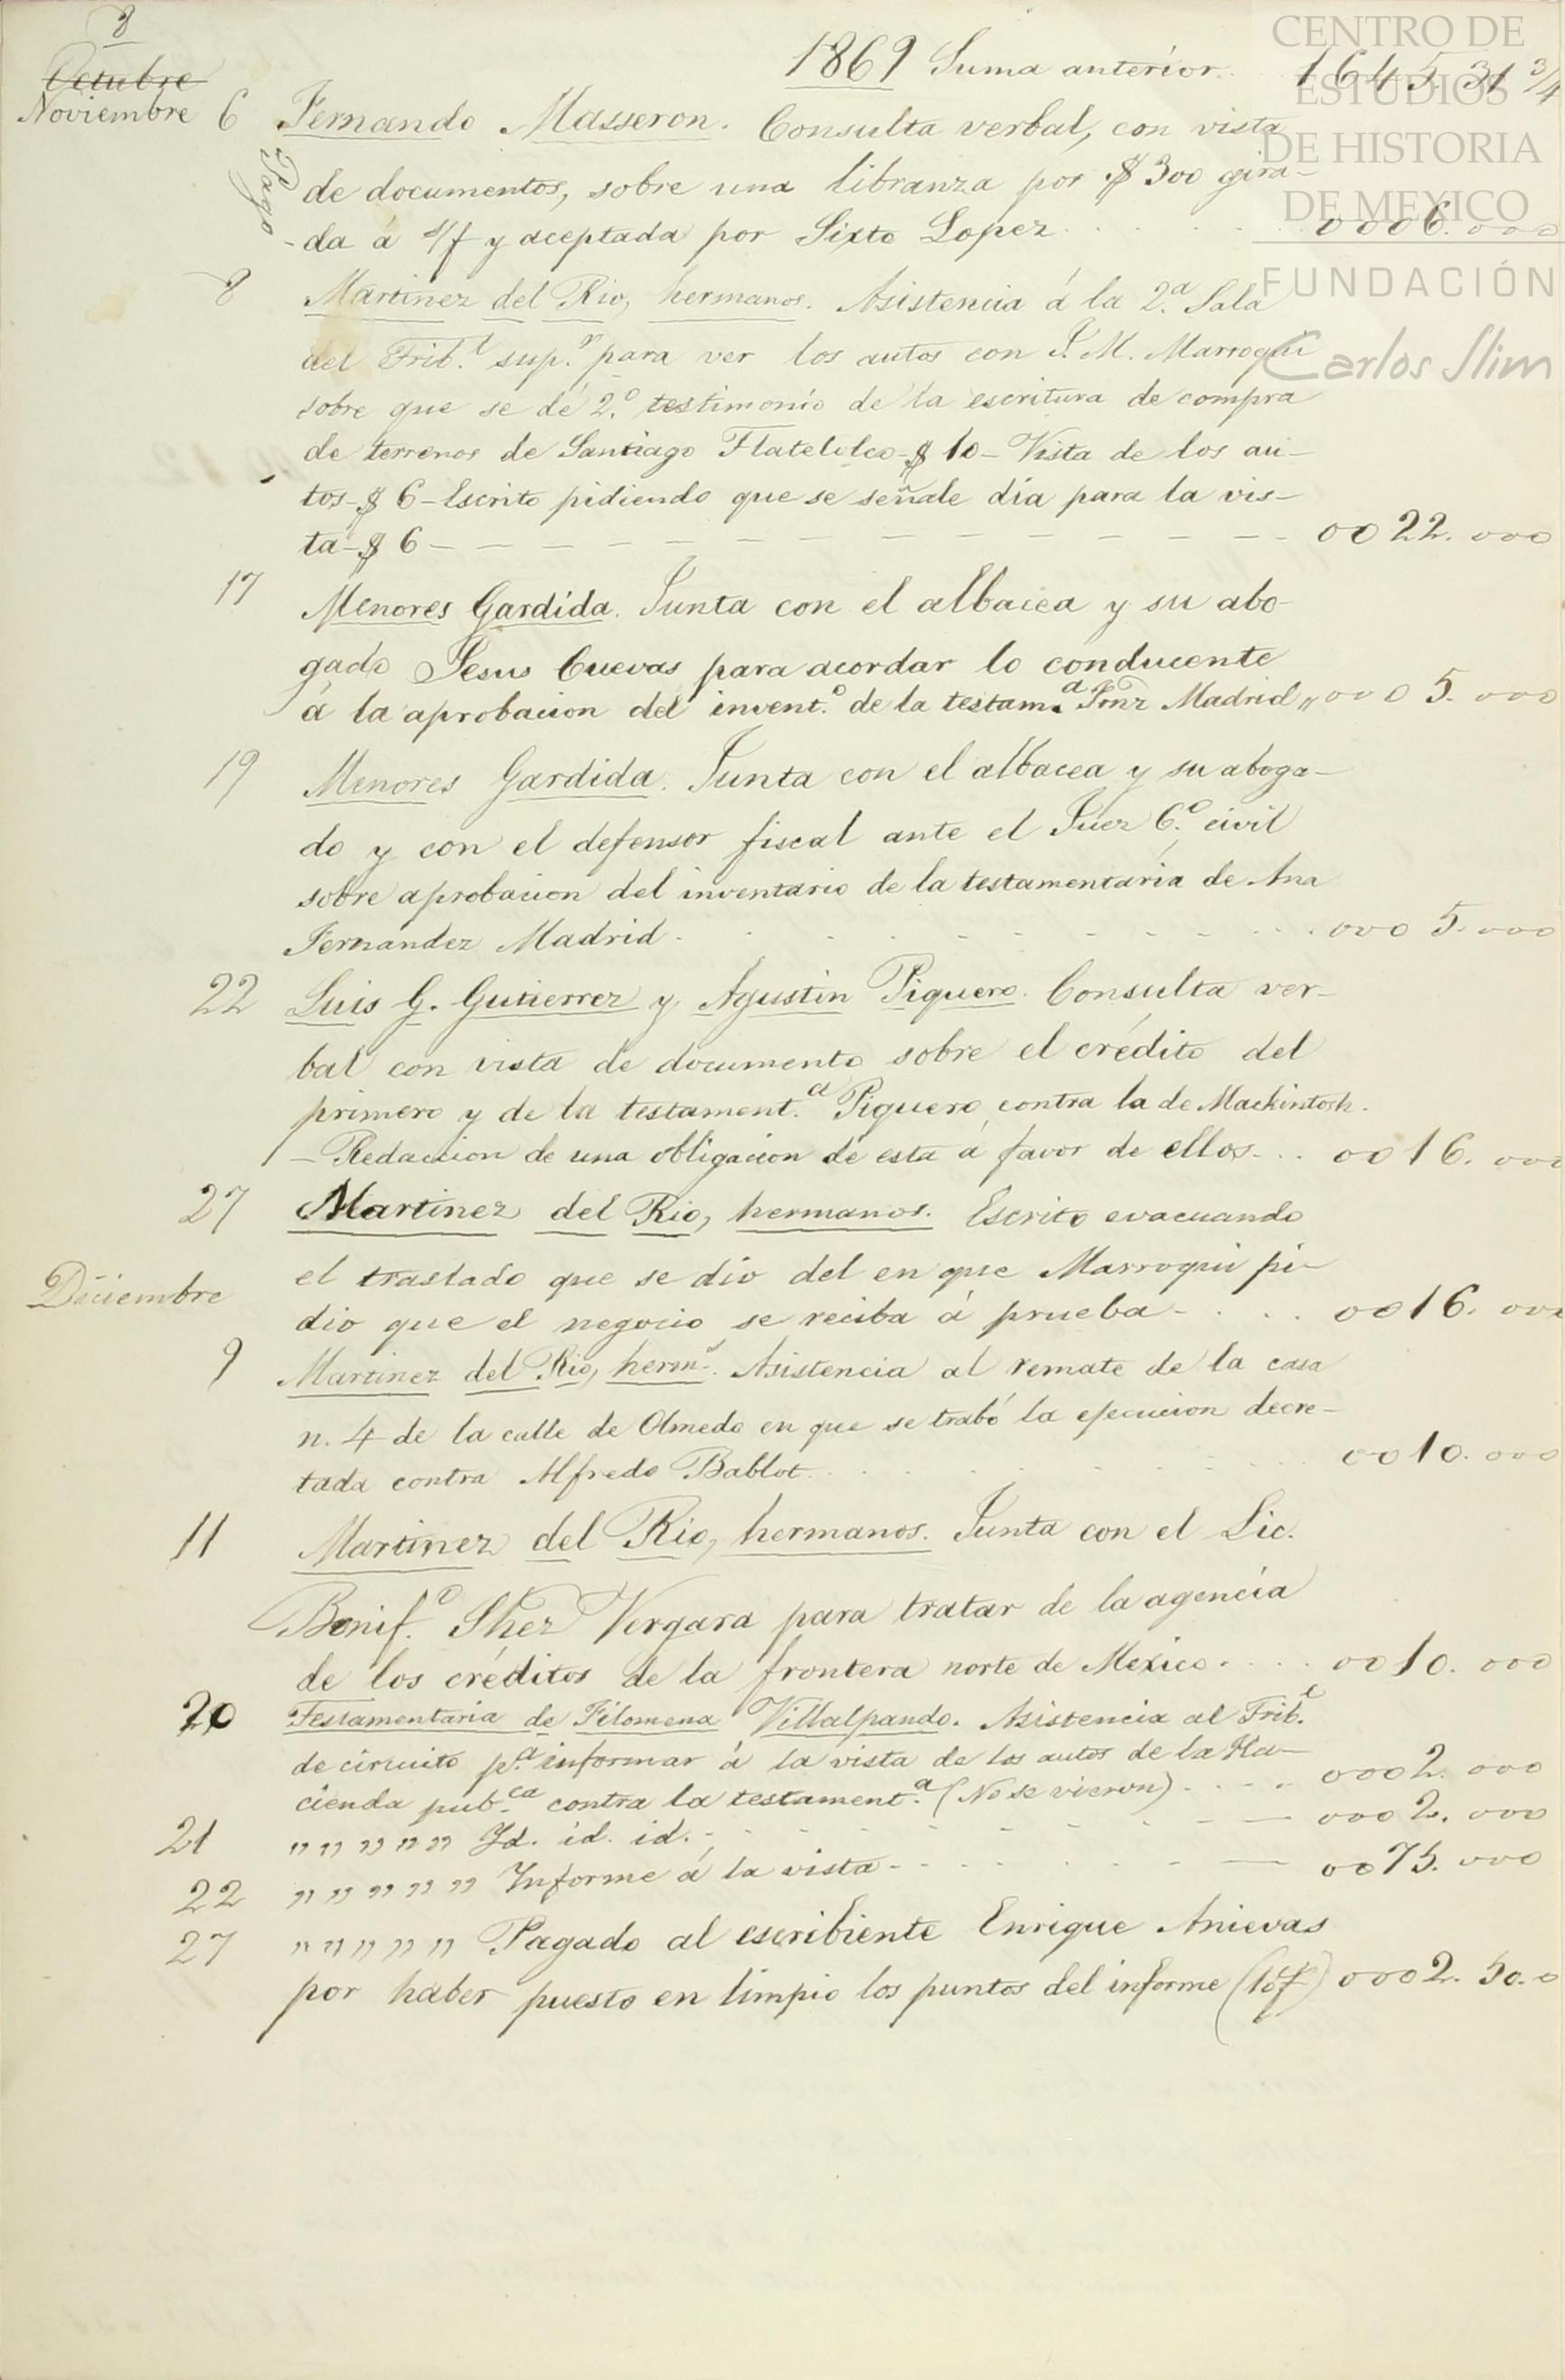 8
1869 Suma anterior. 1645. 31 3/4
Octubre
Noviembre 6 Fernando Masseron. Consulta verbal, con vista
Pagó
de documentos, sobre una libranza por $300 gira-
da á s/f y aceptada por Sixto Lopez. 0006. 000
8 Martinez del Rio, hermanos. Asistencia á la 2.a Sala
del Trib.l sup.r para ver los autos con J. M. Marroqui
sobre que se dé 2.o testimonio de la escritura de compra
de terrenos de Santiago Tlatelolco - $ 10 - Vista de los au-
tos - $ 6 - Escrito pidiendo que se señale día para la vis-
ta - $ 6 - 0022. 000
17 Menores Gardida. Junta con el albacea y su abo-
gado Jesus Cuevas para acordar lo conducente
á la aprobacion del invent.o de la testam.a Frnz Madrid „ 0005. 000
19 Menores Gardida. Junta con el albacea y su aboga-
do y con el defensor fiscal ante el Juez 6.o civil
sobre aprobacion del inventario de la testamentaría de Ana
Fernandez Madrid. 0005. 000
22 Luis G. Gutierrez y Agustin Piquero. Consulta ver-
bal con vista de documento sobre el crédito del
primero y de la testament.a Piquero contra la de Mackintosh.
- Redaccion de una obligacion de esta á favor de ellos. 0016. 000
27 Martinez del Rio, hermanos. Escrito evacuando
el traslado que se dio del en que Marroqui pi-
Diciembre
dio que el negocio se reciba á prueba - 0016. 000
9 Martinez del Rio, herm.s Asistencia al remate de la casa
n. 4 de la calle de Olmedo en que se trabó la ejecucion decre-
tada contra Alfredo Bablot. 0010. 000
11 Martinez del Rio, hermanos. Junta con el Lic.
Bonif.o Shez Vergara para tratar de la agencia
de los créditos de la frontera norte de Mexico. 0010. 000
20 Testamentaria de Filomena Villalpando. Asistencia al Trib.l
de circuito p.a informar á la vista de los autos de la Ha-
cienda pub.ca contra la testament.a (No se vieron). 0002. 000
21 „ „ „ „ „ Id. id. id. - 0002. 000
22 „ „ „ „ „ Informe á la vista - 0075. 000
27 „ „ „ „ „ Pagado al escribiente Enrique Anievas
por haber puesto en limpio los puntos del informe 0002. 50.0
CENTRO DE
ESTUDIOS
DE HISTORIA
DE MEXICO
FUNDACIÓN
Carlos Slim